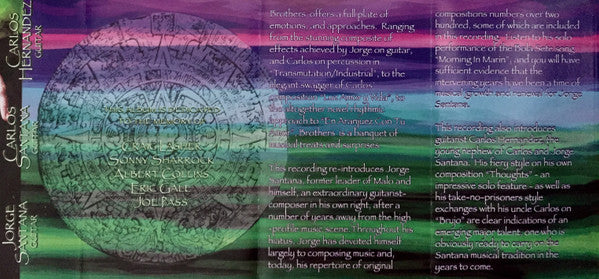 Jorge
Santana
guitar
Carlos
Santana
guitar
Carlos
Hernandez
guitar
to the memory of
Craig Lasher
Sonny Sharrock
Albert Collins
Eric Gale
Joe Pass
Brothers offers a full plate of
emotions, and approaches. Ranging
from the stunning composite of
effects achieved by Jorge on guitar,
and Carlos on percussion in
"Transmutation/Industrial", to the
elegant swagger of Carlos'
composition
approach to "En Aranjuez con Tu
Amor", Brothers is a banquet of
musical treats and surprises.
This recording re-introduces Jorge
Santana, former leader of Malo and
himself, an extraordinary guitarist-
composer in his own right, after a
number of years away from the high
-profile music scene. Throughout his
hiatus, Jorge has devoted himself
largely to composing music and,
today, his repertoire of original
compositions numbers over two
hundred, some of which are included
in this recording. Listen to his solo
performance of the Bola Sete song,
"Morning In Marin", and you will
have sufficient evidence that the
intervening years have been a time of
musical growth and renewal for Jorge
Santana.
This recording also introduces
guitarist Carlos Hernandez, the
young nephew of Carlos and Jorge
Santana. His fiery style on his own
composition "Thoughts" - an
impressive solo feature - as well as
his take-no-prisoners style
exchanges with his uncle Carlos on
"Brujo" are clear indications of an
emerging major talent, one who is
obviously ready to carry on the
Santana musical tradition in the
years to come.